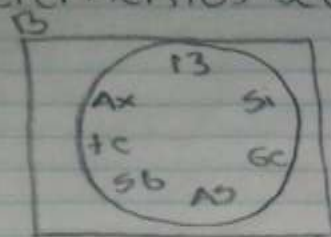 B
B
Ax Si
tc Gc
Sb As